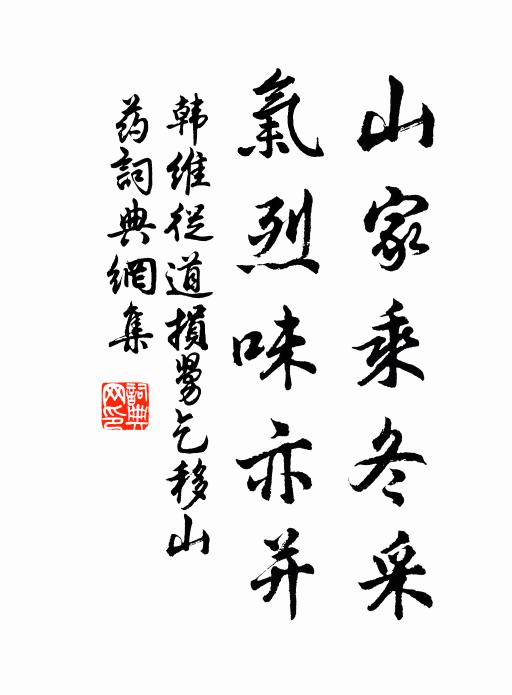 山家乘冬采
氣烈味亦并
韩維從道損舅乞移山
药詞典網集
詞典网印